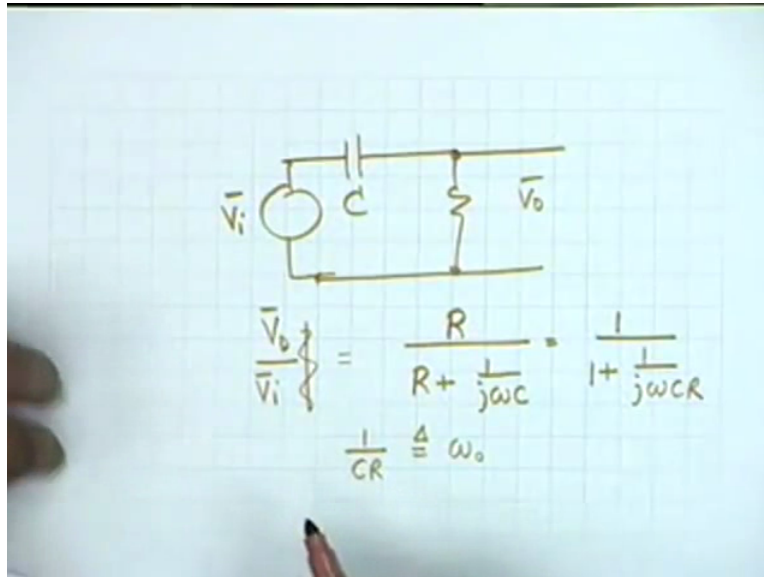 V̄i C V̄o
V̄o/V̄i = R/(R + 1/jωC) = 1/(1 + 1/jωCR)
1/CR ≜ ω₀